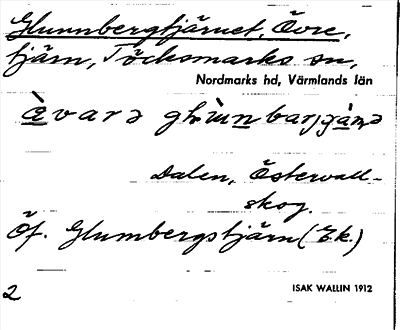 Glunnbergtjärnet, Övre,
tjärn, Töcksmarks sn,
Nordmarks hd, Värmlands län
Dalen, Östervall-
skog.
Öf. Glumbergstjärn (Ek.)
2
ISAK WALLIN 1912